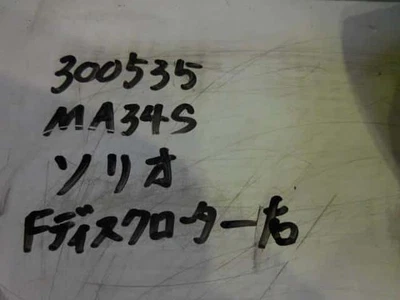 300535
MA34S
ソリオ
Fディスクローター右